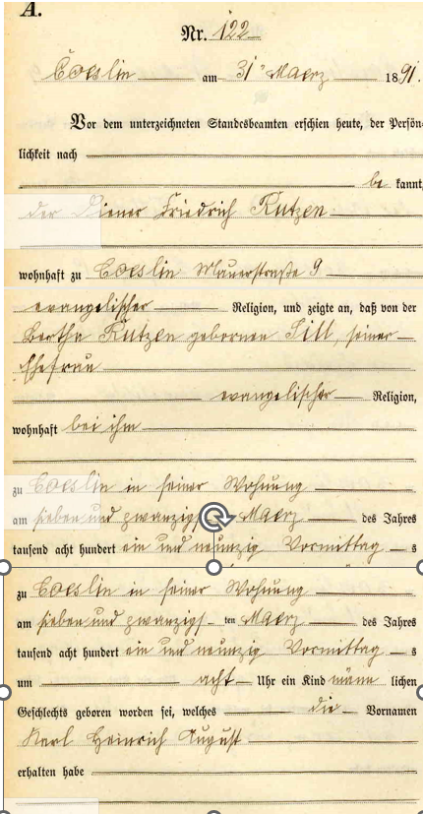 A.
Nr. 122
Coeslin am 31 ten Maerz 1891.
Vor dem unterzeichneten Standesbeamten erschien heute, der Persön-
lichkeit nach
be kannt,
der Diener Friedrich Kutzen
wohnhaft zu Coeslin Mauerstraße 9
evangelischer Religion, und zeigte an, daß von der
Bertha Kutzen gebornen Sill, seiner
Ehefrau
evangelischer Religion,
wohnhaft bei ihm
zu Coeslin in seiner Wohnung
am sieben und zwanzigs Maerz des Jahres
tausend acht hundert ein und neunzig Vormittag s
zu Coeslin in seiner Wohnung
am sieben und zwanzigs ten Maerz des Jahres
tausend acht hundert ein und neunzig Vormittag s
um acht Uhr ein Kind männ lichen
Geschlechts geboren worden sei, welches die Vornamen
Karl Heinrich August
erhalten habe